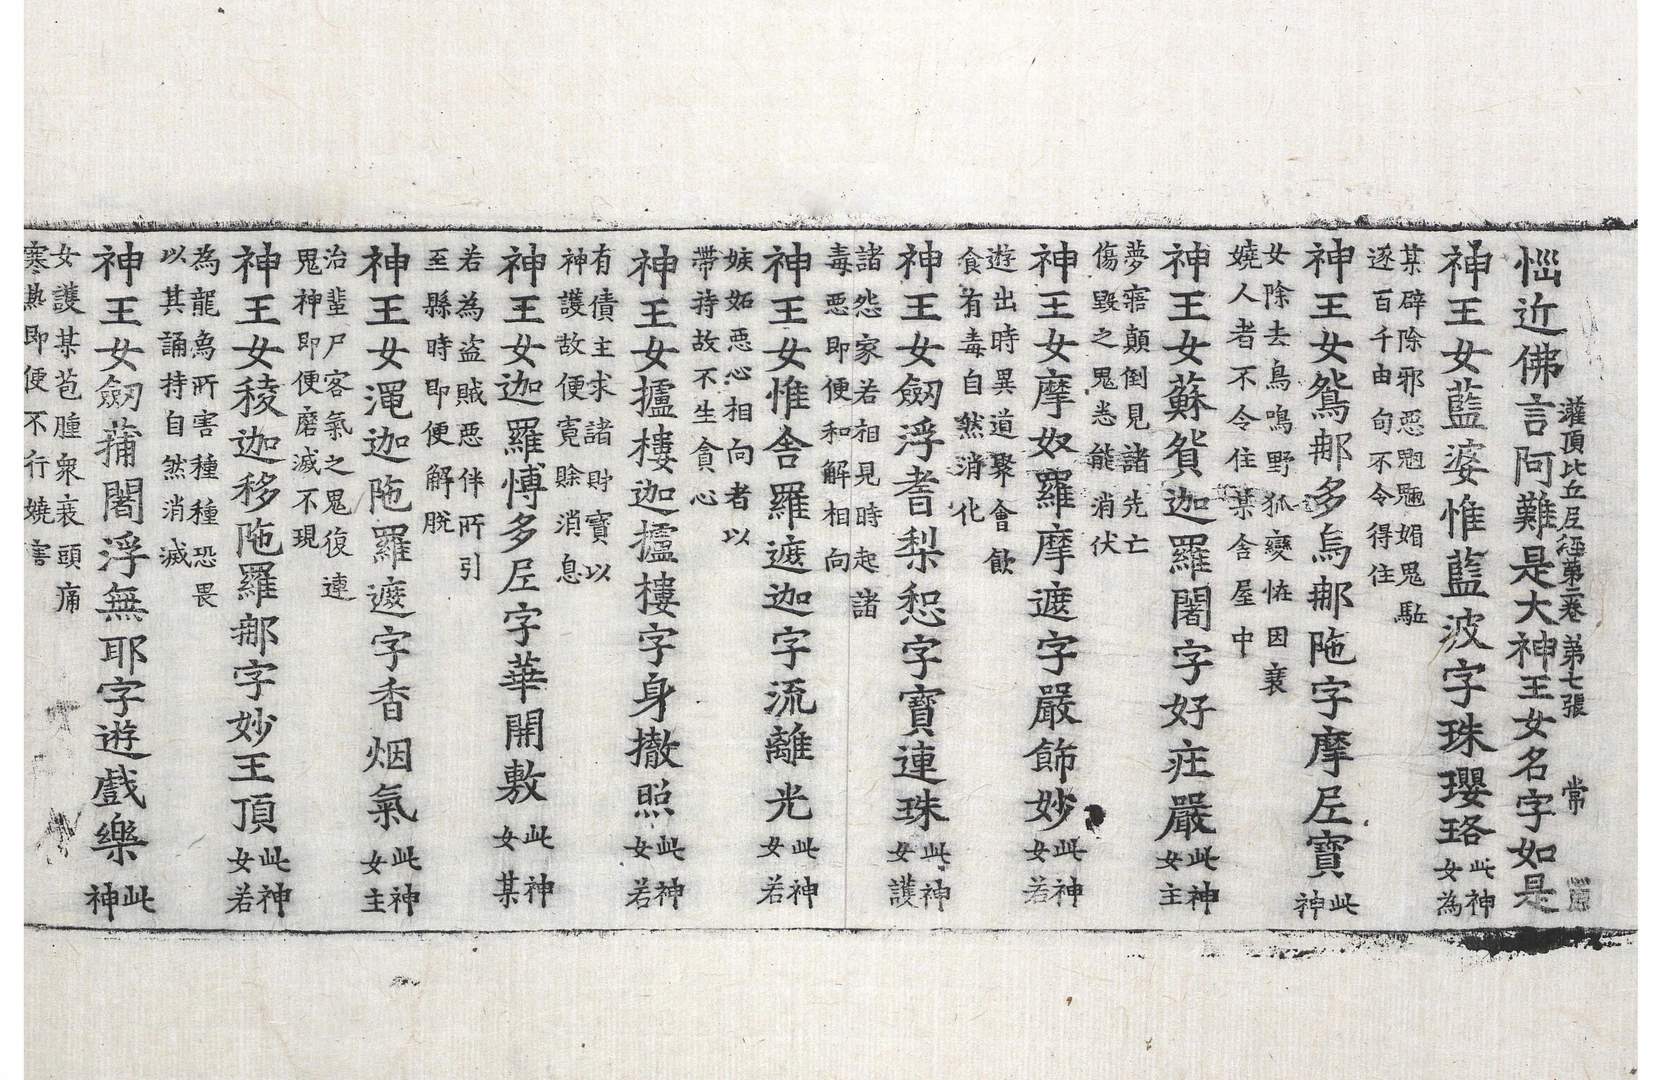 灌頂比丘尼經第二卷 第七張 常
惱近佛言阿難是大神王女名字如是
神王女藍婆惟藍波字珠瓔珞此神女為
某辟除邪惡魍魎媚鬼駈
逐百千由旬不令得住
神王女鴛𨚗多烏𨚗陁字摩尼寶此神
女除去鳥鳴野狐變恠因衰
嬈人者不令住某舍屋中
神王女蘇貿迦羅闍字好庄嚴此神女主
夢寤顛倒見諸先亡
傷毀之鬼悉能消伏
神王女摩奴羅摩遮字嚴飾妙此神女若
遊出時異道聚會飲
食有毒自然消化
神王女劒浮耆梨恕字寶連珠此神女護
諸怨家若相見時起諸
毒惡即便和解相向
神王女惟舍羅遮迦字流離光此神女若
嫉妬惡心相向者以
帶持故不生貪心
神王女攎樓迦攎樓字身撤照此神女若
有債主求諸財寶以
神護故便寬賒消息
神王女迦羅愽多尼字華開敷此神女某
若為盜賊惡伴所引
至縣時即便解脫
神王女渑迦陁羅遮字香烟氣此神女主
治蜚尸客氣之鬼復連
鬼神即便磨滅不現
神王女稜迦移陁羅𨚗字妙王頂此神女若
為龍魚所害種種恐畏
以其誦持自然消滅
神王女劒蒲闍浮無耶字遊戲樂此神
女護某苞腫衆衰頭痛
寒熱即便不行嬈害